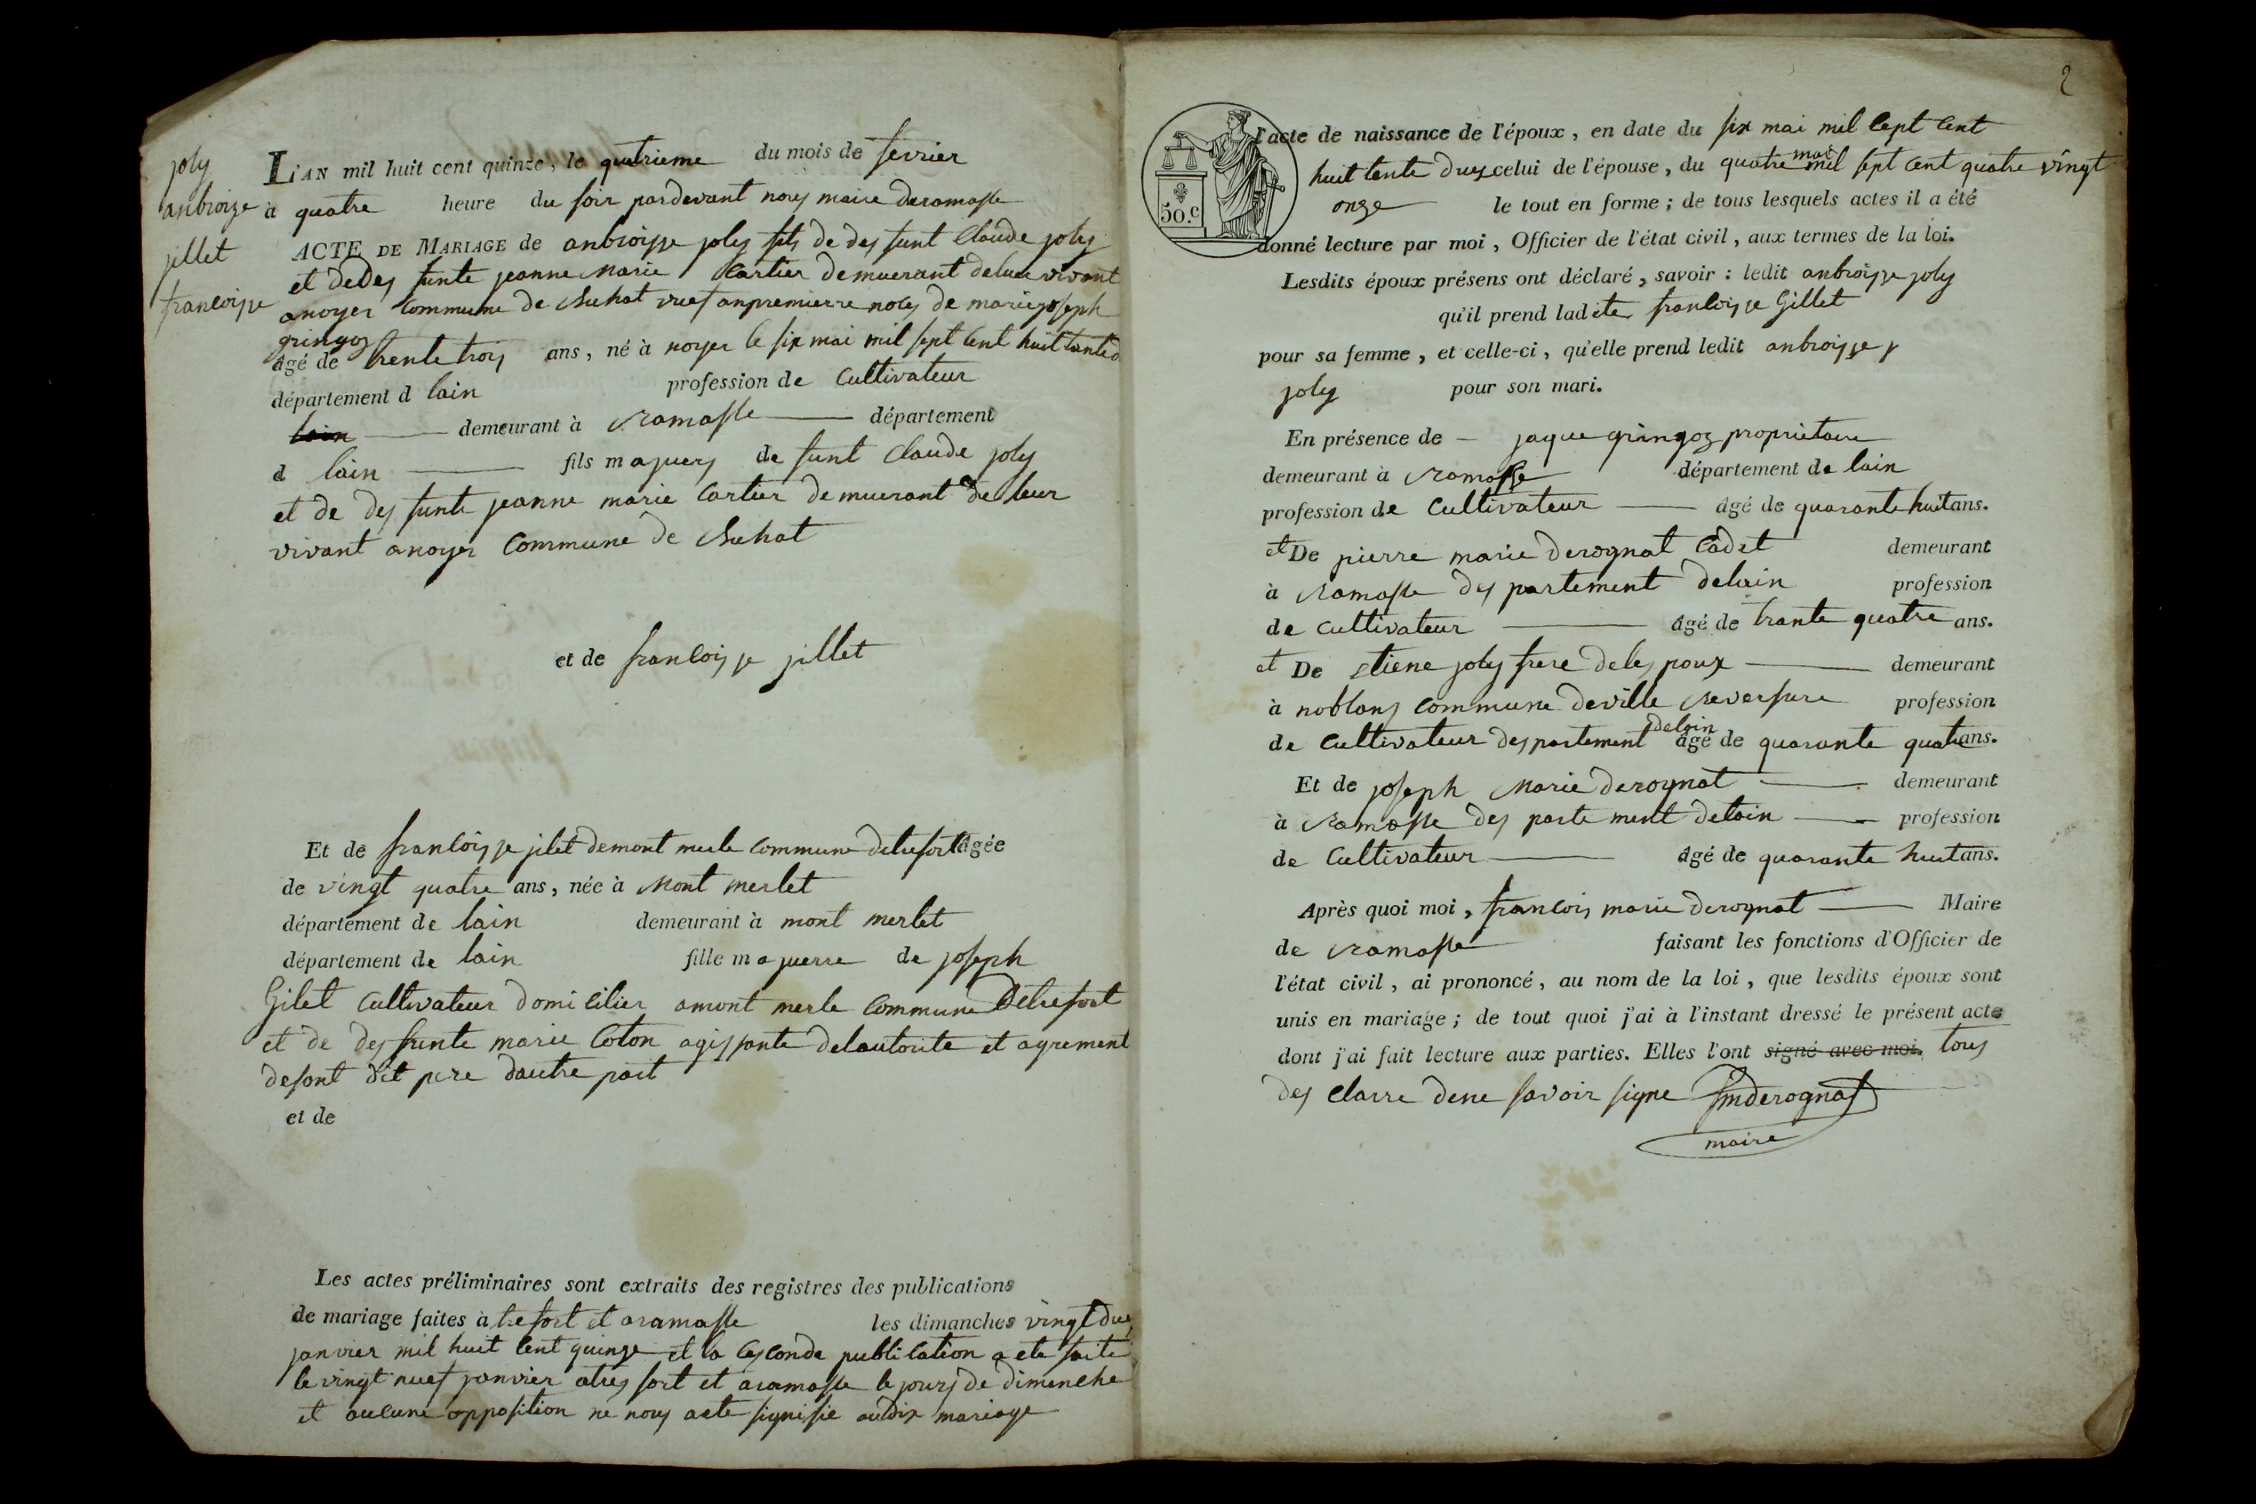 joly
anbroize
jillet
francoisse
L'AN mil huit cent quinze, le quatrieme du mois de fevrier
à quatre heure du soir pardevant nous maire deramasse
ACTE DE MARIAGE de anbroisse joly fils de des funt Claude joly
et dedes funte jeanne Marie Cartier demuerant deluer vivant
anoyer Commune de Chuhat vuef anpremierre noces de marie joseph
gringoz
âgé de trente trois ans, né à noyer le six mai mil sept cent huit tante d
département d lain profession de Cultivateur
lain demeurant à ramasse département
d lain fils majuers de funt Claude joly
et de des funte jeanne marie Cartier demuerant de leur
vivant anoyer Commune de Chuhat
et de francoisse jillet
Et de francoisse jilet demont merle commune detrefort âgée
de vingt quatre ans, née à Mont merlet
département de lain demeurant à mont merlet
département de lain fille majuerre de joseph
Gilet Cultivateur domicilier amont merle Commune Detrefort
et de des funte marie Coton agissante delautorite et agrement
desont dit pere dautre part
et de
Les actes préliminaires sont extraits des registres des publications
de mariage faites à trefort et aramasse les dimanches vingt dues
janvier mil huit cent quinze et la Cesconde publication a ete faite
le vingt nuef janvier atres fort et aramasse le jours de dimenche
et aucune opposition ne nous aete signifie audix mariage
2
l'acte de naissance de l'époux, en date du six mai mil Cept Cent
huit tente dues celui de l'épouse, du quatre mai mil sept cent quatre vingt
50.c onze le tout en forme; de tous lesquels actes il a été
donné lecture par moi, Officier de l'état civil, aux termes de la loi.
Lesdits époux présens ont déclaré, savoir : ledit anbroisse joly
qu'il prend ladite francoisse Gillet
pour sa femme, et celle-ci, qu'elle prend ledit anbroisse j
joly pour son mari.
En présence de jaque gringoz proprietaire
demeurant à ramasse département de lain
profession de Cultivateur âgé de quarante huit ans.
et De pierre marie derognat Cadet demeurant
à ramasse des partement delain profession
de cultivateur âgé de trante quatre ans.
et De etiene joly frere deles poux demeurant
à noblans commune deville reversure profession
de Cultivateur despartement delain âgé de quarante quatre ans.
Et de joseph Marie derognat demeurant
à ramasse des parte ment delain profession
de Cultivateur âgé de quarante huit ans.
Après quoi moi, francois marie derognat Maire
de ramasse faisant les fonctions d'Officier de
l'état civil, ai prononcé, au nom de la loi, que lesdits époux sont
unis en mariage; de tout quoi j'ai à l'instant dressé le présent acte
dont j'ai fait lecture aux parties. Elles l'ont signé avec moi. tous
des clarre dene savoir signe fmderognat
maire